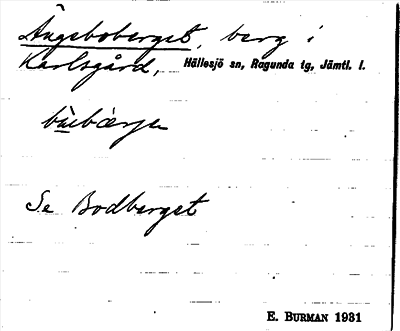 Ängeboberget, berg i
Karlsgård, Hällesjö sn, Ragunda tg, Jämtl. l.
Se Bodberget
E. BURMAN 1931